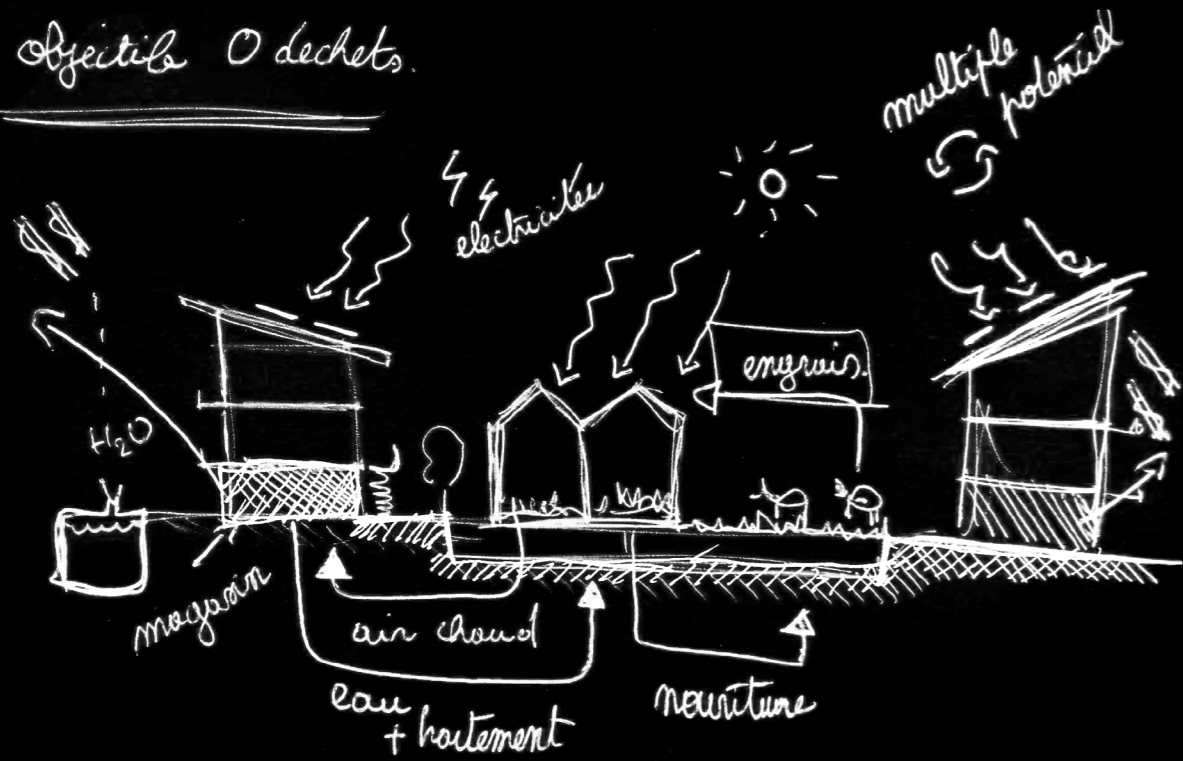 objectife 0 dechets.
multiple
potentiel
electricitée
engrais.
H2O
magasin
air chaud
eau
nouriture